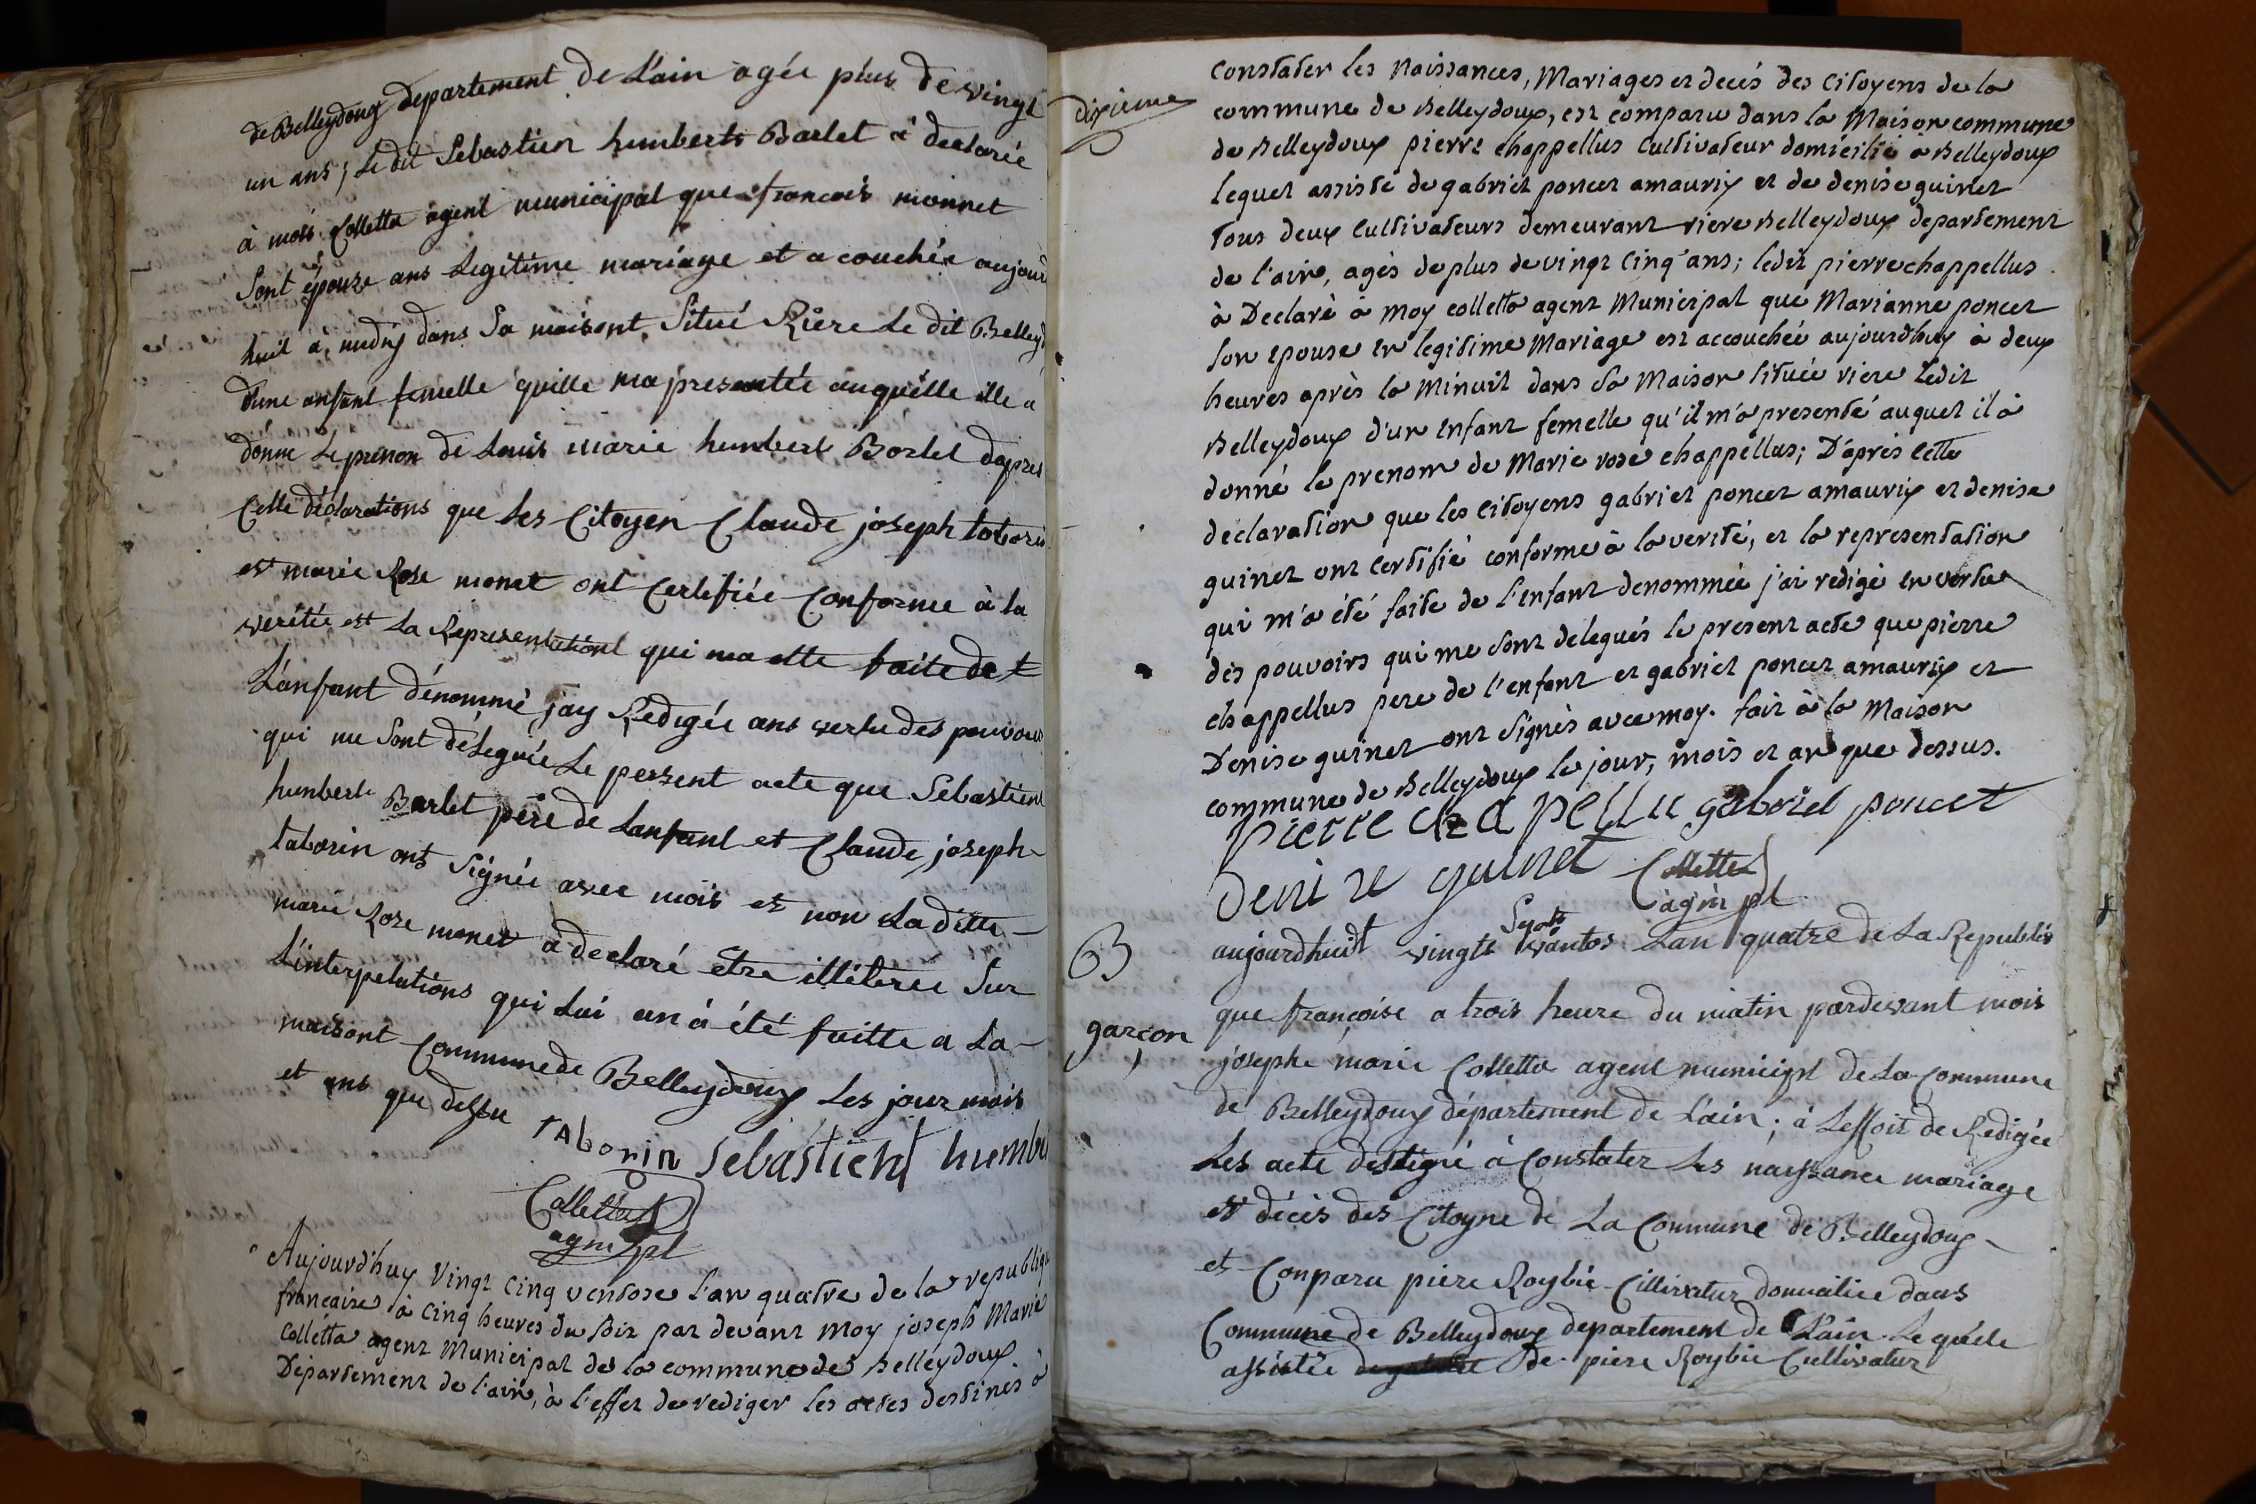 de Belleydoux departement de L'ain agée plus de vingt
un ans; Le dit Sebastien humberts Barlet à declarée
à mois Colletta agent municipal que francois monnet
Sont épouze ans Legitime mariage et a couchée aujourd
huit à midy dans Sa maisont Situé Riere Le dit Belleyd
d'une anfant femelle quille ma presentée auquelle ille a
donné Le prenon de Louis marie humbert Borlet dapres
Cette déclarations que Les Citoyen Claude joseph taborin
est marie Rose monet ont Certifiée Conforme à la
verité est La Representationt qui ma ette faite de
L'anfant dénommé jay Redigée ans vertu des pouvour
qui me Sont déleguée Le persent acte que Sebastient
humberts Barlet père de Lanfant et Claude joseph
taborin ont Signée avec mois et non La ditte
marie Roze monet a declaré etre illiteree Sur
L'interpelations qui Lui an à été faitte a La
maisont Commune de Belleydoux Les jour mois
et ans que dessu
tAborin Sebastient humbe
Colletta
agm pl
Aujourd'huy Vingt cinq ventose l'an quatre de la republiq
francaises à cinq heures du Soir par devant moy joseph Marie
Colletta agent Municipal de la commune de Belleydoux
Departement de l'ain, à l'effet de rediger les actes destinés à
dixieme
constater les Naissances, Mariages et decés des Citoyens de la
commune de Belleydoux, est comparu dans la Maison commune
de Belleydoux pierre chappellus Cultivateur domicilié à Belleydoux
lequel assisté de gabriel poncet amaurix et de denise guinet
tous deux Cultivateurs demeurant riere Belleydoux departement
de l'ain, agés de plus de vingt cinq ans; ledit pierre chappellus
à Declaré à moy colletta agent Municipal que Marianne poncet
son epouse en legitime Mariage est accouchée aujourd'huy à deux
heures après la Minuit dans Sa Maison Située riere Ledit
Belleydoux d'un Enfant femelle qu'il m'a presenté auquel il à
donné le prenom de Marie rose chappellus; D'après Cette
declaration que les citoyens gabriel poncet amaurix et denise
guinet ont certifié conforme à la verité, et la representation
qui m'a été faite de l'enfant denommée j'ai redigé en vertu
des pouvoirs qui me sont delegués le present acte que pierre
chappellus pere de l'enfant et gabriel poncet amaurix et
Denise guinet ont signés avec moy. fait à la Maison
commune de Belleydoux le jour, mois et an que dessus.
pierre chapellu gabriel poncet
denise guinet Colletta
agm pl
B
garçon
aujourdhuidt vingte Sept vantos Lan quatre de La Republis
que françoise a trois heure du matin pardevant mois
josephe marie Colletta agent municipl de La Commune
de Belleydoux département de L'ain; à Leffoit de Redigée
Les acte destigné à Constater Les naissance mariage
et décès des Citoyne de La Commune de Belleydoux
et Conparu piere Roybié Cillivatur domicilie dans
Commune de Belleydoux departement de L'ain Lequele
assistée de piere Roybie Cultivatur